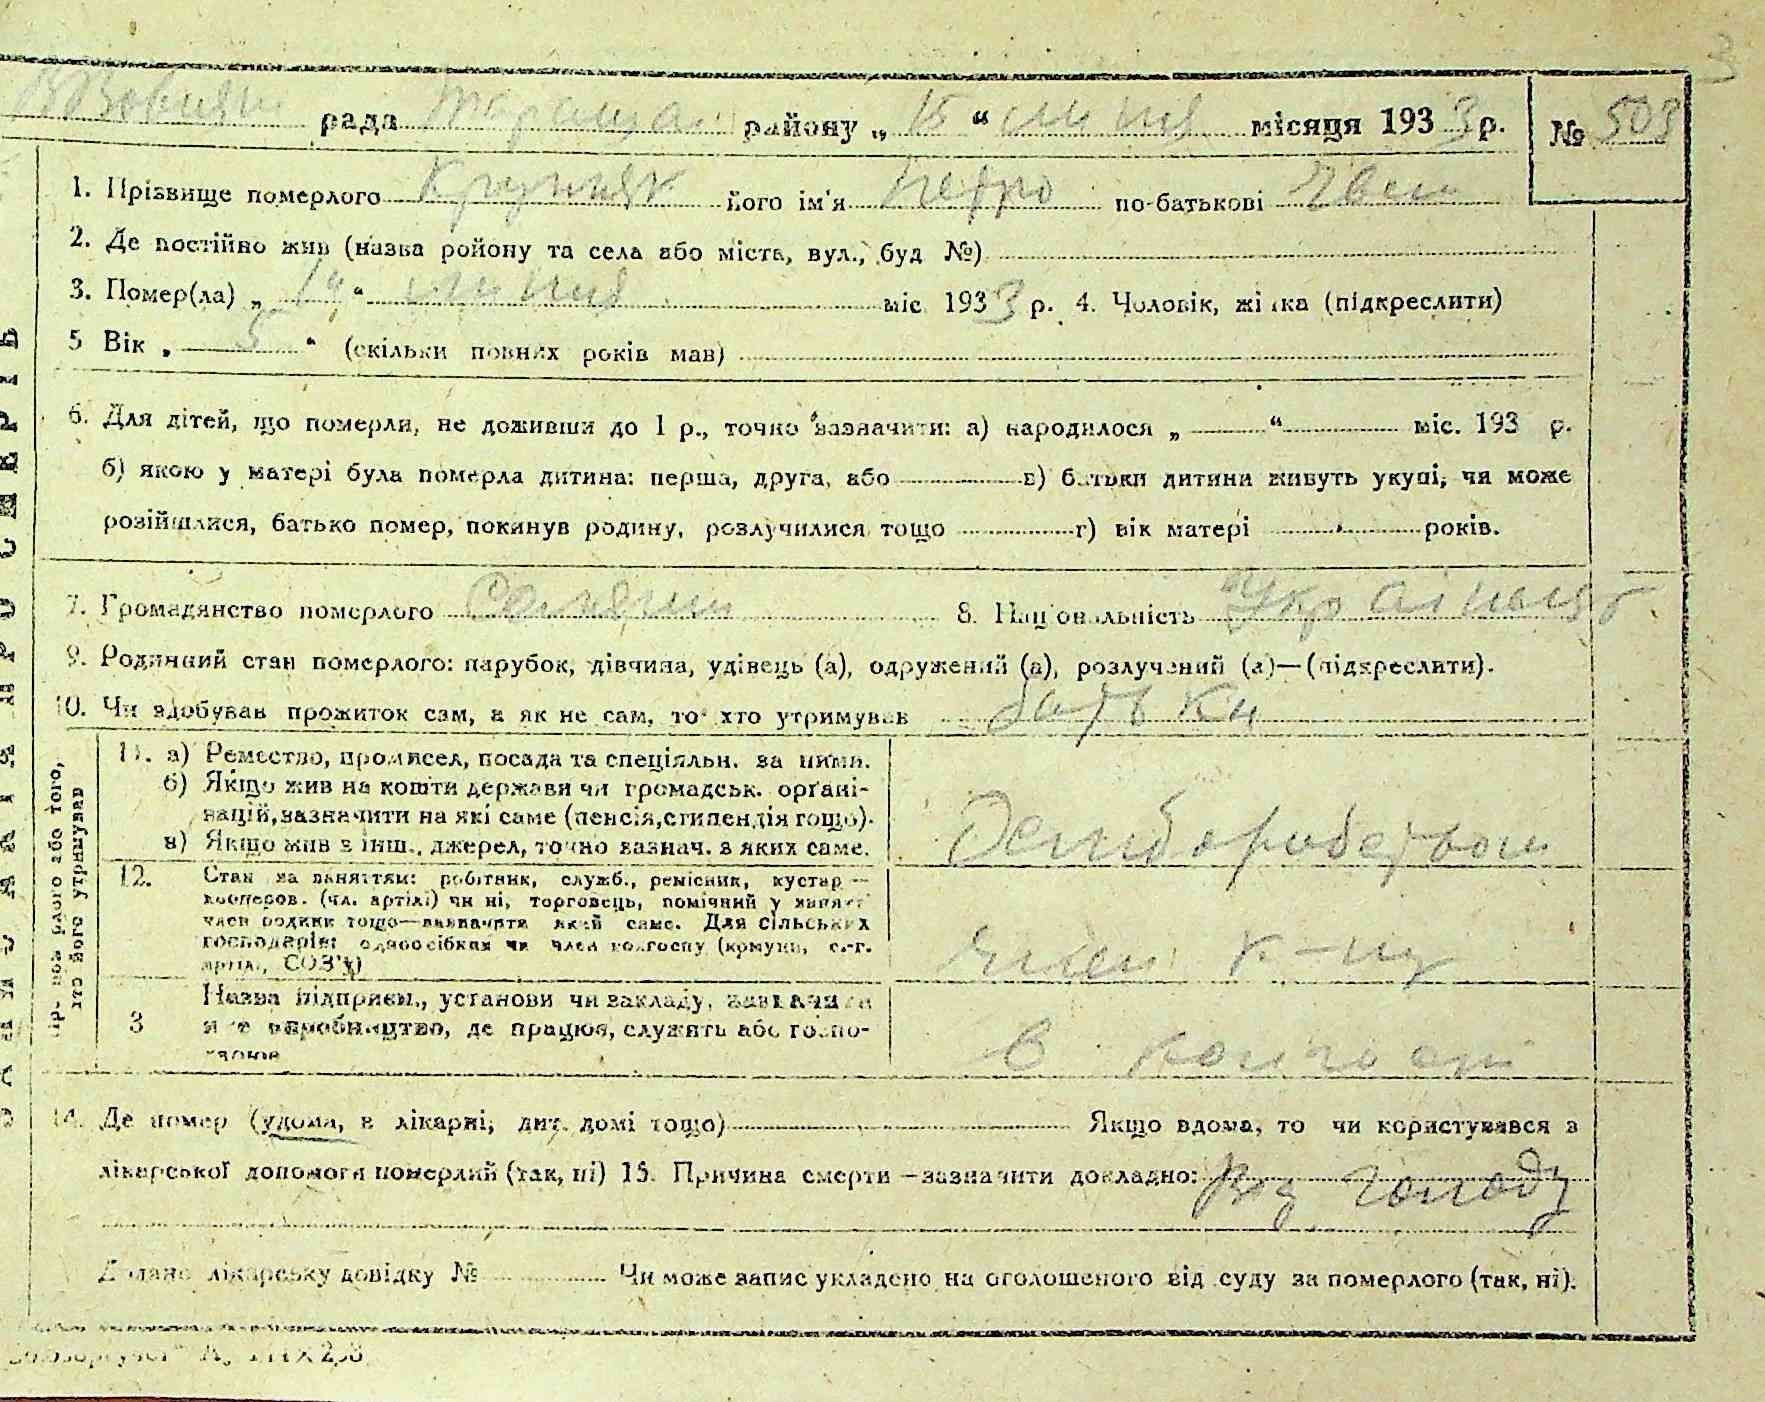 3
рада Таращан. району „ 15 “ липня місяця 193 3 р. № 503
1. Прізвище померлого його ім'я Петро по-батькові
2. Де постійно жив (назва ройону та села або міста, вул., буд №)
3. Помер(ла) „ “ липня міс 193 3 р. 4. Чоловік, жінка (підкреслити)
5 Вік „ 5 “ (скільки повних років мав)
6. Для дітей, що померли, не доживши до 1 р., точно зазначити: а) народилося „ “ міс. 193 р.
б) якою у матері була померла дитина: перша, друга, або в) батьки дитини живуть укупі, чи може
розійшлися, батько помер, покинув родину, розлучилися тощо г) вік матері років.
7. Громадянство померлого селянин 8. Національність
9. Родинний стан померлого: парубок, дівчина, удівець (а), одружений (а), розлучений (а)—(підкреслити).
10. Чи здобував прожиток сам, а як не сам, то хто утримував батьки
11. а) Ремество, промисел, посада та спеціяльн. за ними.
б) Якщо жив на кошти держави чи громадськ. орґані-
зацій, зазначити на які саме (пенсія, стипендія тощо).
в) Якщо жив з інш., джерел, точно зазнач. з яких саме.
12. Стан за заняттям: робітник, служб., ремісник, кустар—
кооперов. (чл. артілі) чи ні, торговець, помічний у занятт
член родини тощо—зазначити який саме. Для сільських
господарів: одноосібник чи член колгоспу (комуни, с.-г.
артіл., СОЗ'у) член к-пу
3 Назва підприєм., установи чи закладу, зазначити
яке виробництво, де працює, служить або госпо-
в колгоспі
14. Де помер (удома, в лікарні, дит. домі тощо) Якщо вдома, то чи користувався з
лікарської допомоги померлий (так, ні) 15. Причина смерти —зазначити докладно: Від голоду
лікарську довідку № Чи може запис укладено на оголошеного від суду за померлого (так, ні).